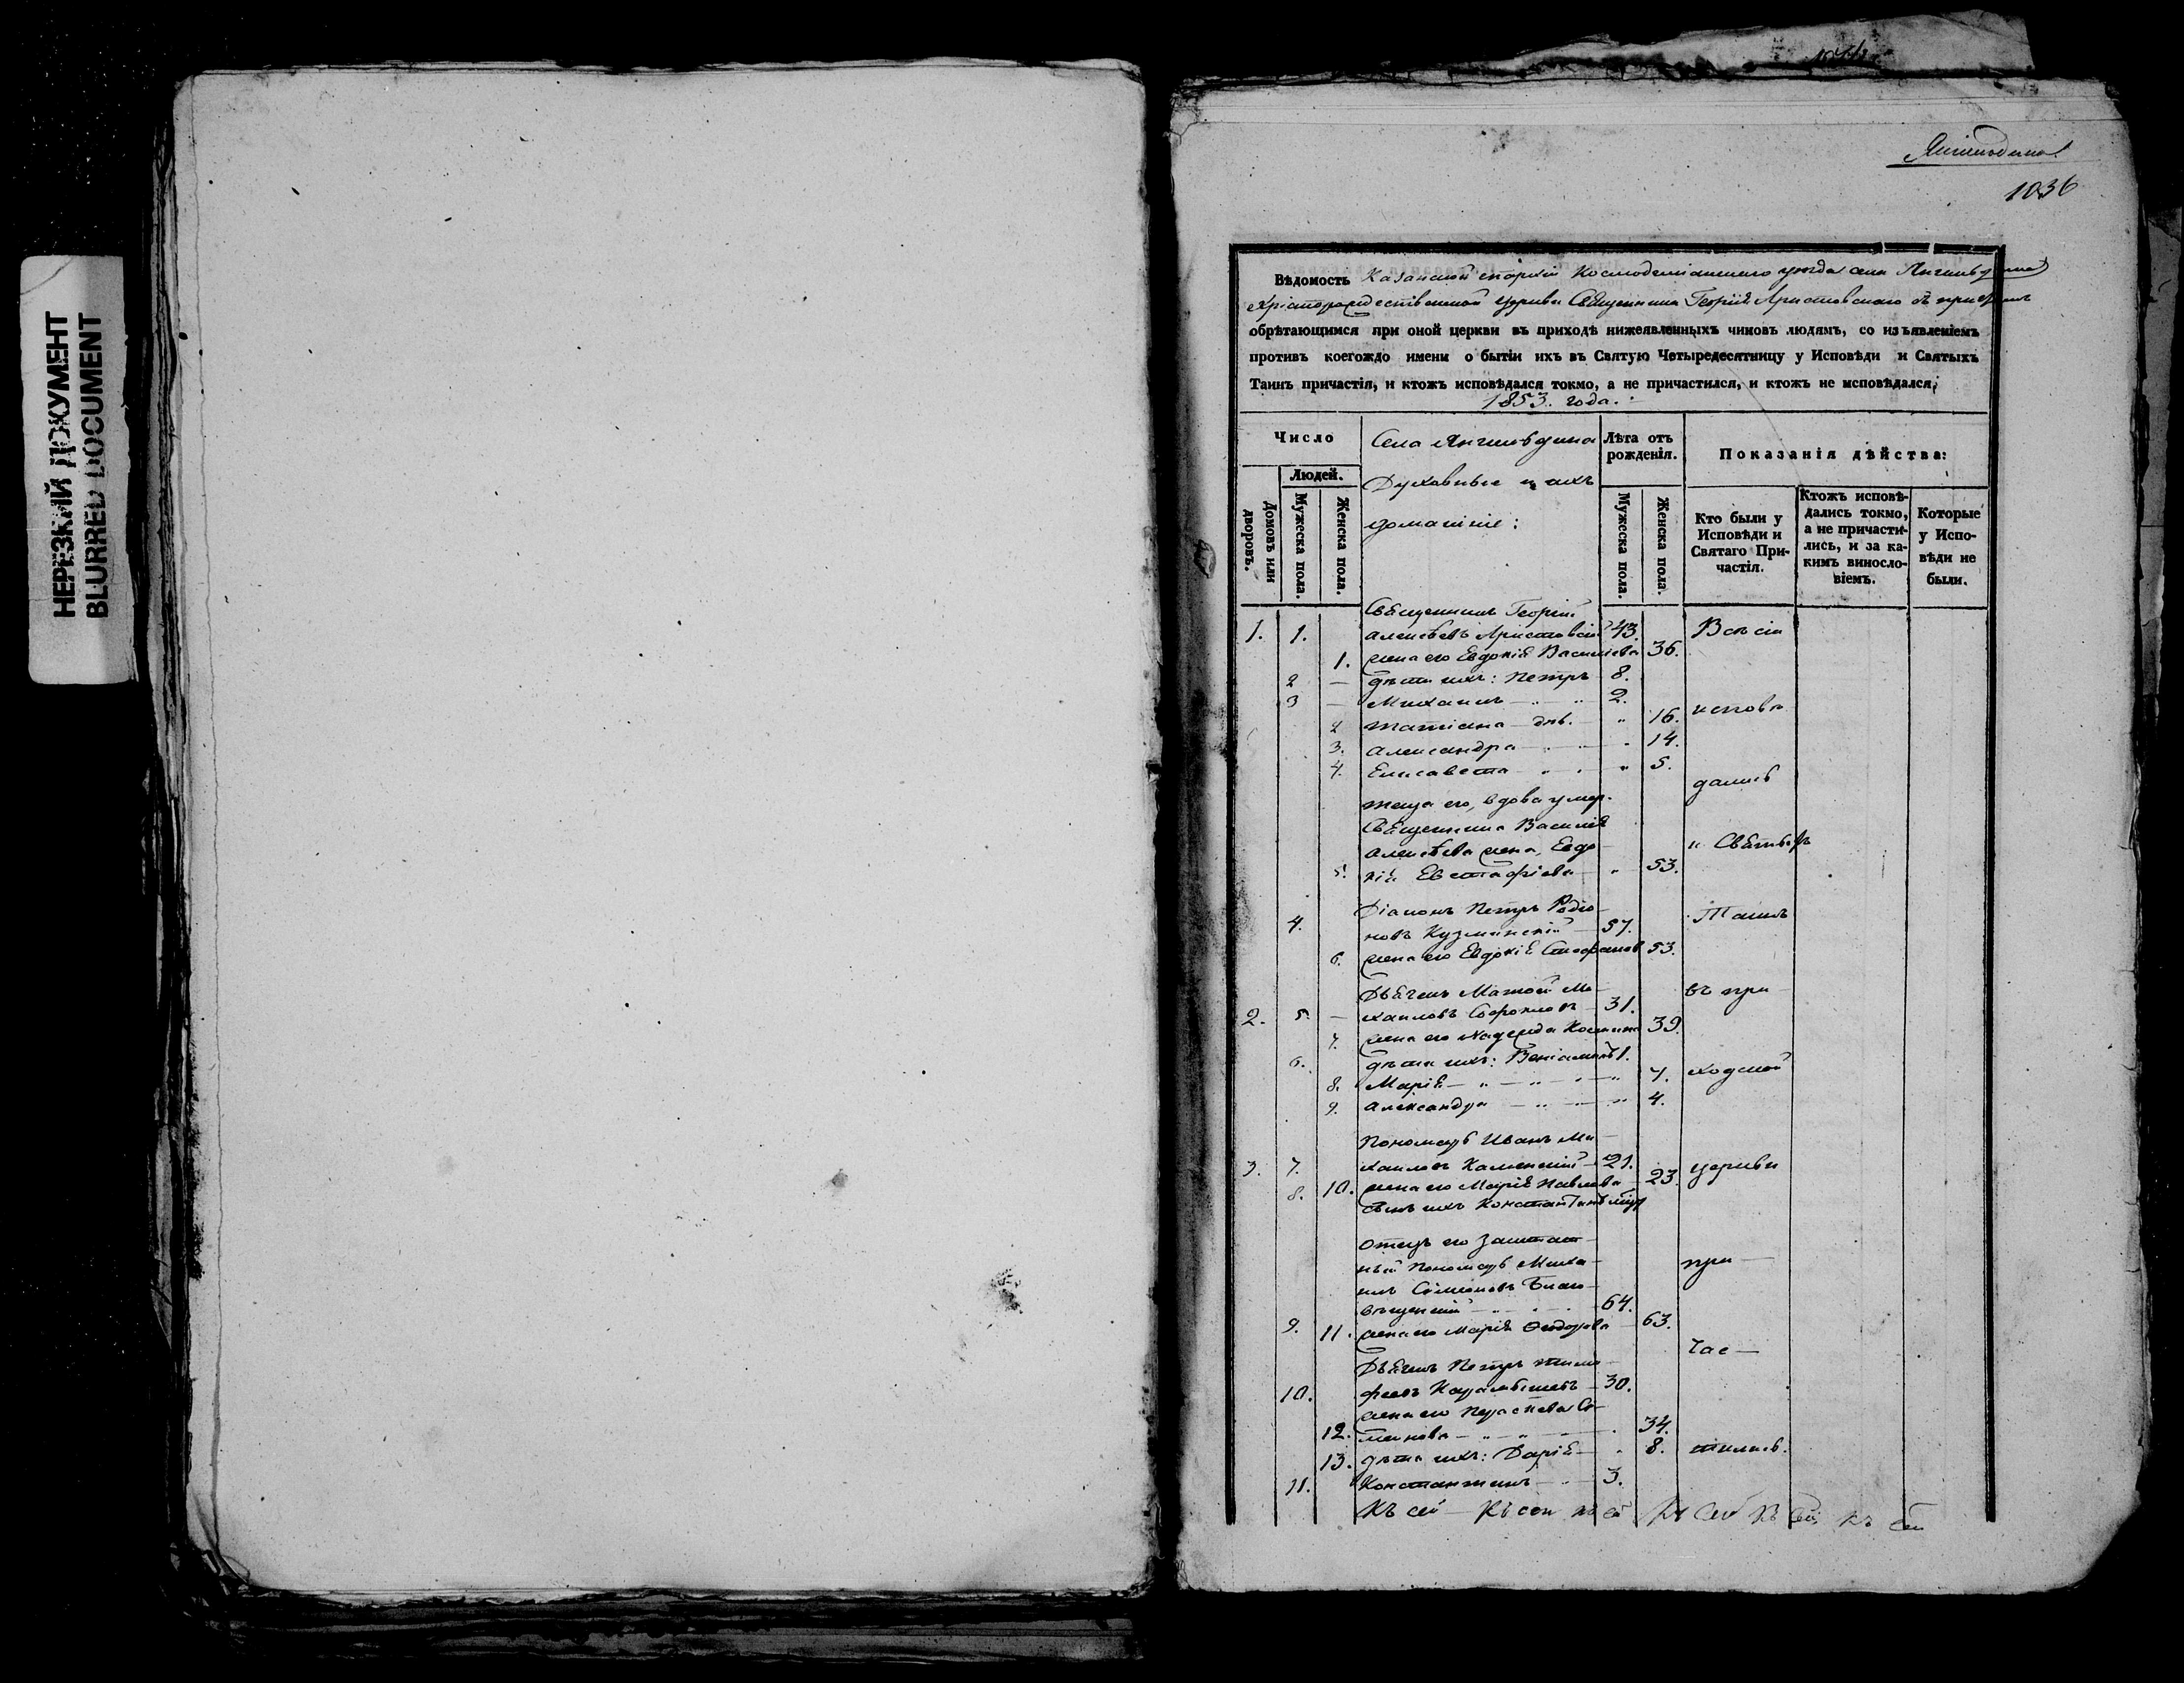 НЕРЕЗКИЙ ДОКУМЕНТ
BLURRED DOCUMENT
1036
Вѣдомость Казанской епархіи Космодеміанскаго уѣзда села Янгильдина
Христорождественской церкви Священника Георгія Аристовскаго съ причтомъ
обрѣтающимся при оной церкви въ приходѣ нижеявленныхъ чиновъ людямъ, со изъявленіемъ
противъ коегождо имени о бытіи ихъ въ Святую Четыредесятницу у Исповѣди и Святыхъ
Таинъ причастія, и ктожъ исповѣдался токмо, а не причастился, и ктожъ не исповѣдался,
1853. года.
Число
Людей.
Домовъ или дворовъ.
Мужеска пола.
Женска пола.
Села Янгильдина
Духовные и ихъ
домашніе:
Лѣта отъ рожденія.
Мужеска пола.
Женска пола.
Показанія дѣйства:
Кто были у Исповѣди и Святаго Причастія.
Ктожъ исповѣдались токмо, а не причастились, и за какимъ винословіемъ.
Которые у Исповѣди не были.
Священникъ Георгій
1. 1. Алексѣевъ Аристовскій 43. Всѣ сіи
1. жена его Евдокія Василіева 36.
2 — дѣти ихъ: Петръ 8.
3 — Михаилъ 2.
2 Татіана — дѣв. 16. исповѣ
3. Александра 14.
4. Елисавета 5.
дались
теща его, вдова умер.
Священника Василія
Алексѣева жена, Евдо- и Святыхъ
5. кія Евстафіева 53.
Діаконъ Петръ Родіо- Таинъ
4. новъ Кузминскій 57.
6. жена его Евдокія Стефанов 53.
Дьячекъ Матѳей Ми- въ при
2. 5. — хаиловъ 31.
7. жена его Надежда 39.
6. дѣти ихъ: Веніаминъ 1.
8. Марія 7. ходской
9. Александра 4.
Пономарь Иванъ Ми-
3. 7. хаиловъ Каменскій 21. церкви
8. 10. жена его Марія Павлова 23.
сынъ ихъ Константинъ
Отецъ его заштат-
ный Пономарь Миха- при—
илъ Симеоновъ Благо-
вѣщенскій 64.
9. 11. жена его Марія Ѳеодорова 63.
час—
Дьячекъ Петръ Тимо-
10. феевъ 30.
жена его Параскева Си-
12. меонова 34.
13. дѣти ихъ: Дарія 8. тились.
11. Константинъ 3.
Къ сей — Къ сей къ сей Къ сей Къ сей къ сей